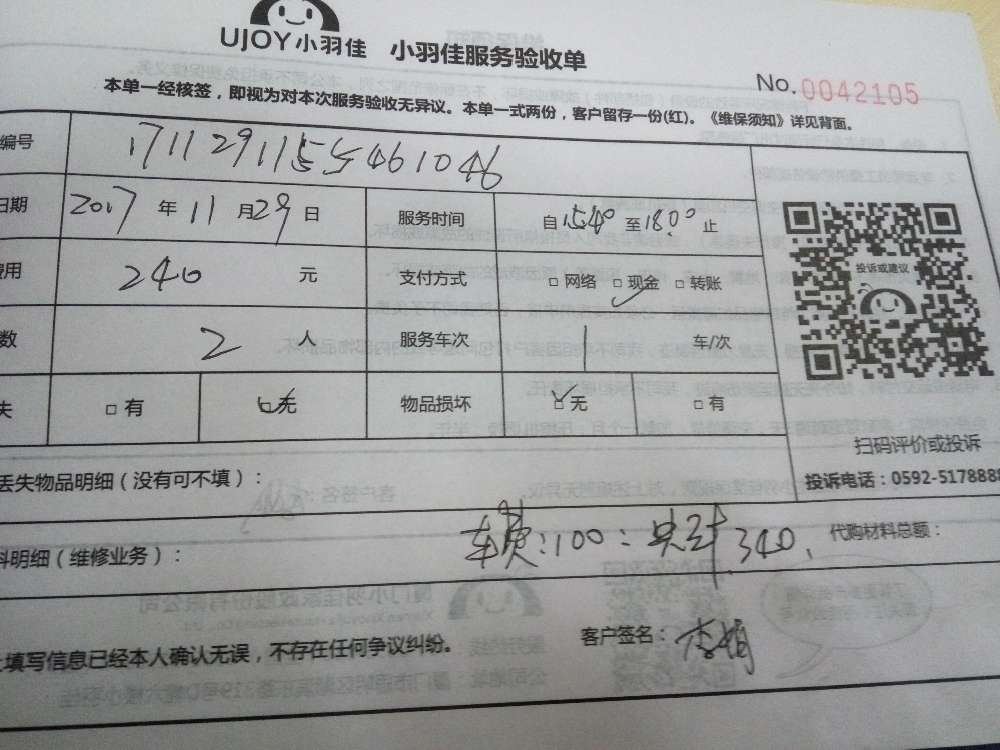 UJOY小羽佳 小羽佳服务验收单
No.0042105
本单一经核签，即视为对本次服务验收无异议。本单一式两份，客户留存一份(红)。《维保须知》详见背面。
编号 17112911554461046
日期 2017 年 11 月 29 日 服务时间 自15:40 至18:00 止
费用 240 元 支付方式 □ 网络 □ 现金 □ 转账
数 2 人 服务车次 1 车/次
失 □ 有 □ 无 物品损坏 □ 无 □ 有
投诉或建议
扫码评价或投诉
投诉电话：0592-5178888
丢失物品明细（没有可不填）：
料明细（维修业务）： 车费:100: 共计 340. 代购材料总额：
上填写信息已经本人确认无误，不存在任何争议纠纷。 客户签名： 李娟